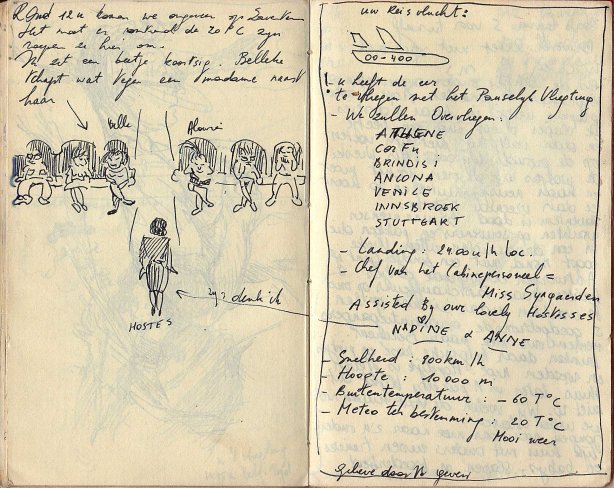 Rond 12u komen we ongeveer op
Het moet er rond de 20°C zijn
er hier om.
Ik eet een beetje koortsig. Belleke
slaapt wat tegen een madame naast
haar
Belle
zij? denk ik
HOSTES
uw Reisvlucht:
00-400
u heeft de eer
te vliegen met het Pauselijk Vliegtuig
- We zullen Overvliegen.
ATHENE
CORFU
BRINDISI
ANCONA
VENICE
INNSBROEK
STUTTGART
- Landing: 24.00 u/h loc.
- Chef van het Cabinepersoneel =
Miss Syngaerden
Assisted By our lovely Hostesses
NADINE & ANNE
- Snelheid: 900 km/h
- Hoogte: 10 000 m
- Buitentemperatuur: - 60 T°C
- Meteo ter bestemming: 20 T°C
Mooi weer
Gelieve door te geven